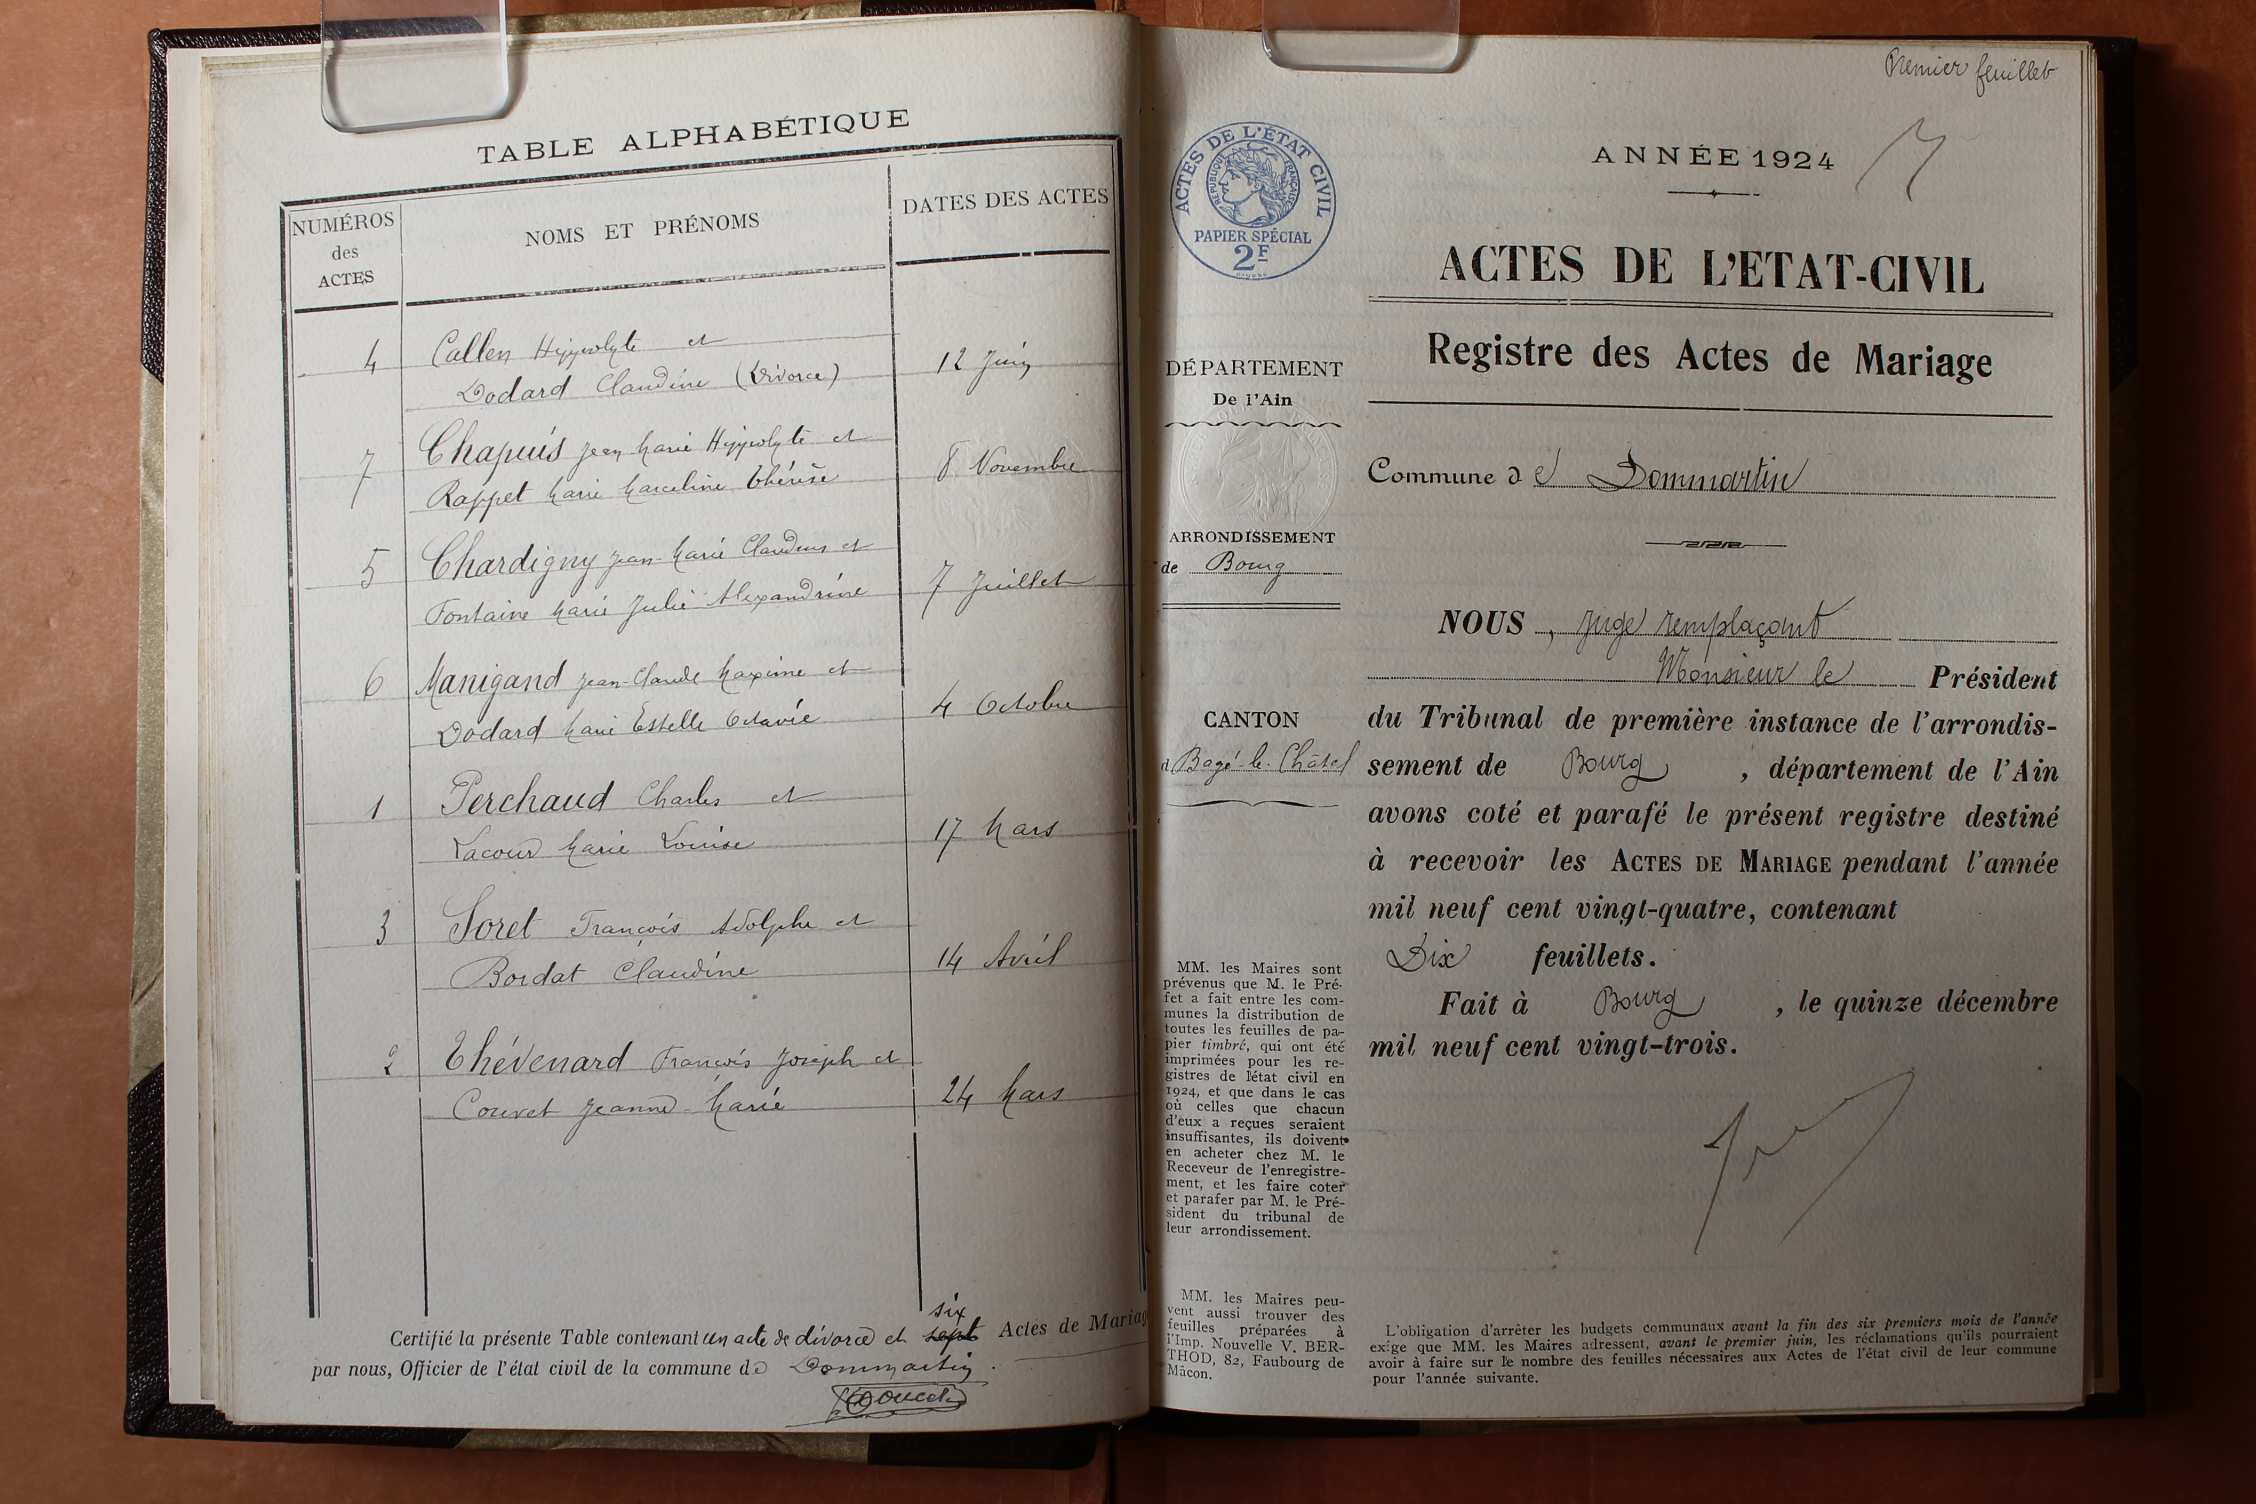 TABLE ALPHABÉTIQUE
NUMÉROS
des
ACTES
NOMS ET PRÉNOMS
DATES DES ACTES
4 Callen Hyppolyte et
Dodard Claudine (Divorce) 12 Juin
7 Chapuis Jean Marie Hyppolyte et
Rappet Marie Marceline Thérèse 8 Novembre
5 Chardigny Jean-Marie Claudius et
Fontaine Marie Julie Alexandrine 7 Juillet
6 Manigand Jean-Claude Maxime et
Dodard Marie Estelle Octavie 4 Octobre
1 Perchaud Charles et
Lacour Marie Louise 17 Mars
3 Soret François Adolphe et
Bordat Claudine 14 Avril
2 Thévenard François Joseph et
Couvet Jeanne-Marie 24 Mars
six
Certifié la présente Table contenant un acte de divorce et sept Actes de Mariag
par nous, Officier de l'état civil de la commune de Dommartin.
Doucet
Premier feuillet
ACTES DE L'ÉTAT CIVIL
RÉPUBLIQUE FRANÇAISE
PAPIER SPÉCIAL
2F
ANNÉE 1924
ACTES DE L'ETAT-CIVIL
Registre des Actes de Mariage
DÉPARTEMENT
De l'Ain
Commune de Dommartin
ARRONDISSEMENT
de Bourg
CANTON
d Bagé-le-Châtel
NOUS, juge remplaçant
Monsieur le Président
du Tribunal de première instance de l'arrondis-
sement de Bourg, département de l'Ain
avons coté et parafé le présent registre destiné
à recevoir les ACTES DE MARIAGE pendant l'année
mil neuf cent vingt-quatre, contenant
Dix feuillets.
Fait à Bourg, le quinze décembre
mil neuf cent vingt-trois.
MM. les Maires sont
prévenus que M. le Pré-
fet a fait entre les com-
munes la distribution de
toutes les feuilles de pa-
pier timbré, qui ont été
imprimées pour les re-
gistres de l'état civil en
1924, et que dans le cas
où celles que chacun
d'eux a reçues seraient
insuffisantes, ils doivent
en acheter chez M. le
Receveur de l'enregistre-
ment, et les faire coter
et parafer par M. le Pré-
sident du tribunal de
leur arrondissement.
MM. les Maires peu-
vent aussi trouver des
feuilles préparées à
l'Imp. Nouvelle V. BER-
THOD, 82, Faubourg de
Mâcon.
L'obligation d'arrêter les budgets communaux avant la fin des six premiers mois de l'année
exige que MM. les Maires adressent, avant le premier juin, les réclamations qu'ils pourraient
avoir à faire sur le nombre des feuilles nécessaires aux Actes de l'état civil de leur commune
pour l'année suivante.